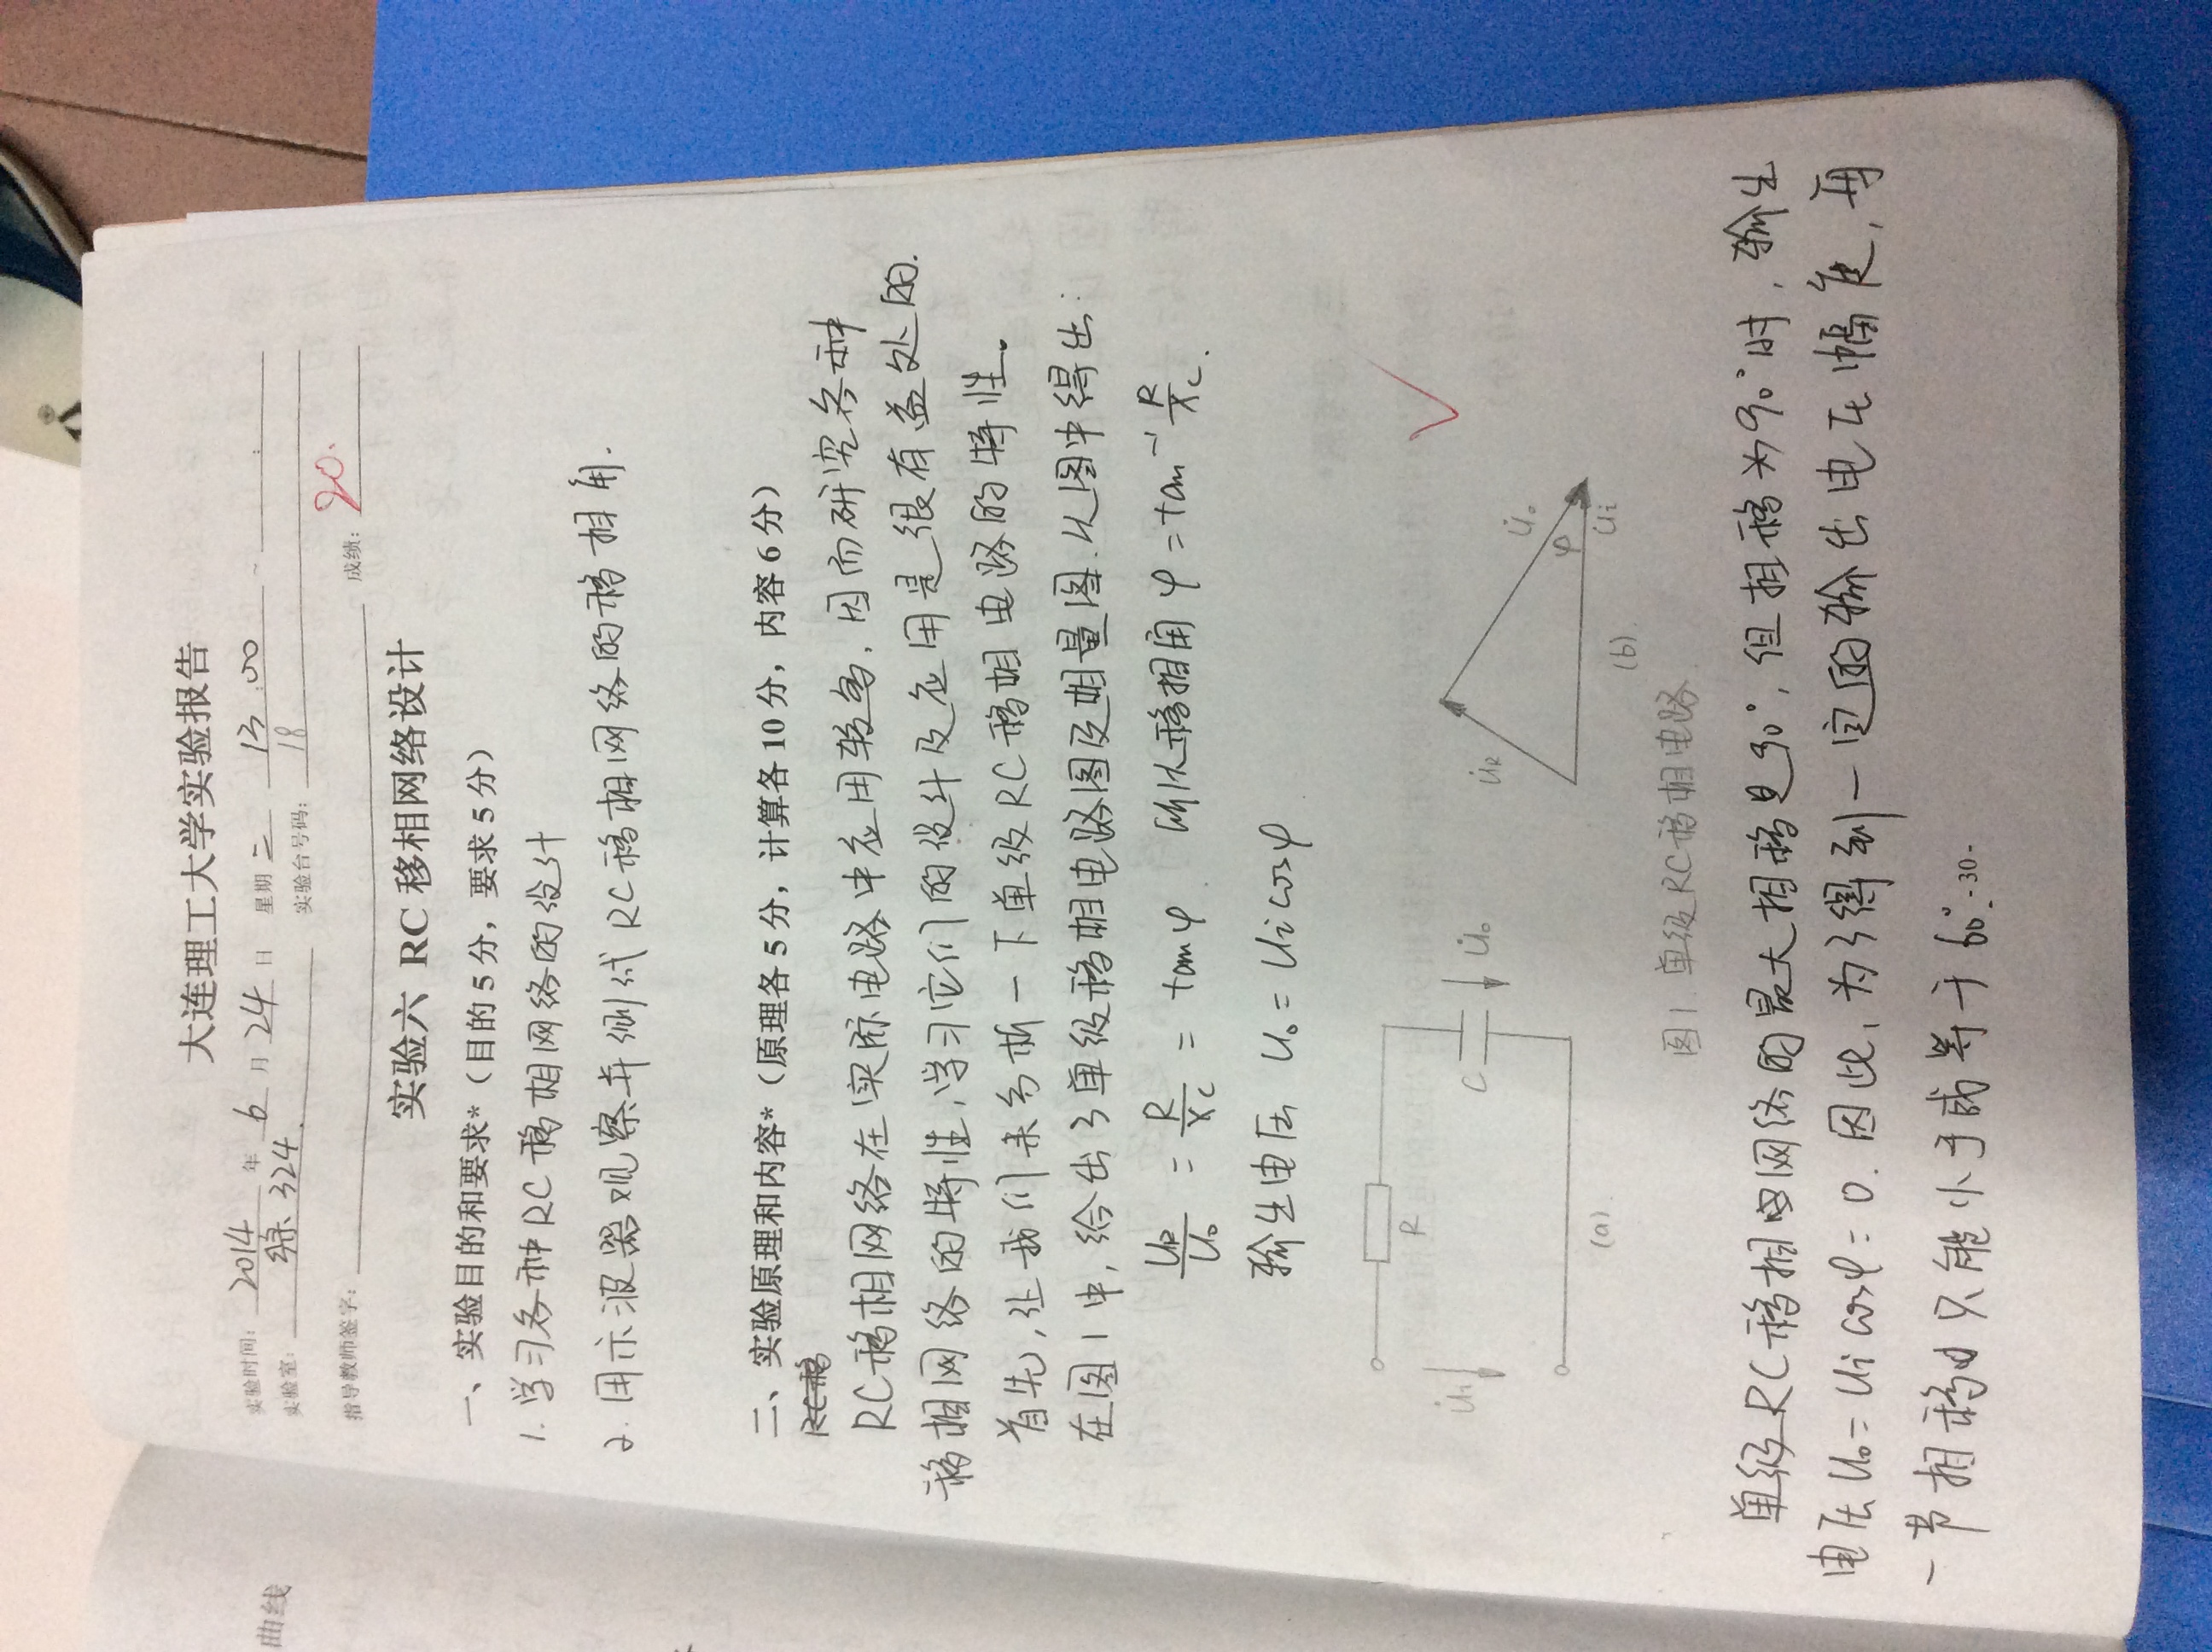 曲线
大连理工大学实验报告
实验时间: 2014 年 6 月 24 日 星期 二 13:00 ~ :
实验室: 综 324. 实验台号码: 18
指导教师签字: 成绩: 90.
实验六 RC 移相网络设计
一、实验目的和要求*（目的 5 分，要求 5 分）
1. 学习各种RC移相网络的设计
2. 用示波器观察并测试RC移相网络的移相角.
二、实验原理和内容*（原理各 5 分，计算各 10 分，内容 6 分）
RC移
RC移相网络在实际电路中应用较多, 因而研究各种
移相网络的特性, 学习它们的设计及应用是很有益处的.
首先, 让我们来分析一下单级RC移相电路的特性。
在图1中, 给出了单级移相电路图及相量图. 从图中得出:
U_R/U_o = R/X_C = tanφ 所以移相角 φ = tan⁻¹ R/X_C.
输出电压 U_o = U_i cosφ
R
U̇i C U̇o U̇R U̇o φ U̇i
(a). (b).
图1. 单级RC移相电路
单级RC移相网络的最大相移是90°, 但相移为90°时, 输出
电压U_o = U_i cosφ = 0. 因此, 为了得到一定的输出电压幅度, 每
一节相移只能小于或等于60°.
-30-